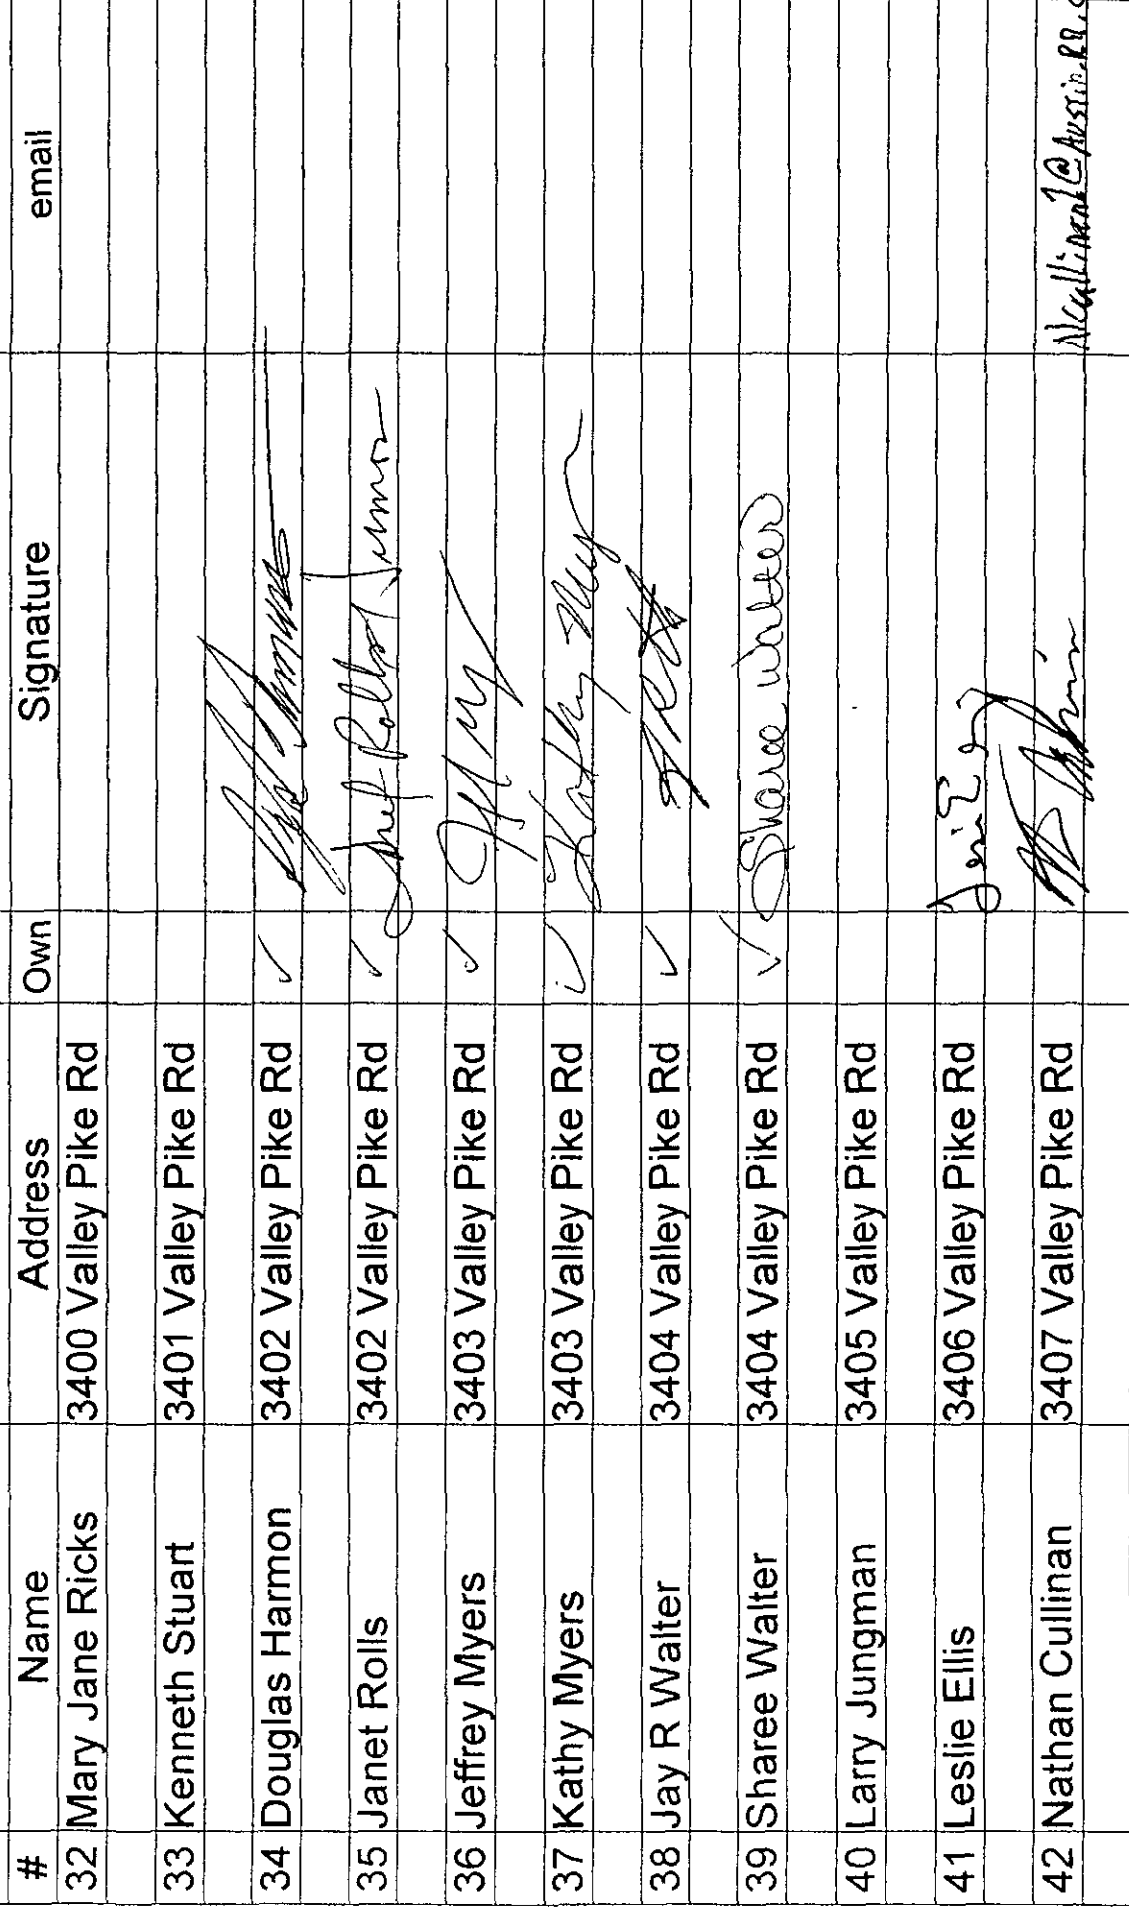 # Name Address Own Signature email
32 Mary Jane Ricks 3400 Valley Pike Rd
33 Kenneth Stuart 3401 Valley Pike Rd
34 Douglas Harmon 3402 Valley Pike Rd ✓
35 Janet Rolls 3402 Valley Pike Rd ✓ Janet Rolls
36 Jeffrey Myers 3403 Valley Pike Rd ✓
37 Kathy Myers 3403 Valley Pike Rd ✓ Kathy
38 Jay R Walter 3404 Valley Pike Rd ✓
39 Sharee Walter 3404 Valley Pike Rd ✓ Sharee Walter
40 Larry Jungman 3405 Valley Pike Rd
41 Leslie Ellis 3406 Valley Pike Rd
42 Nathan Cullinan 3407 Valley Pike Rd